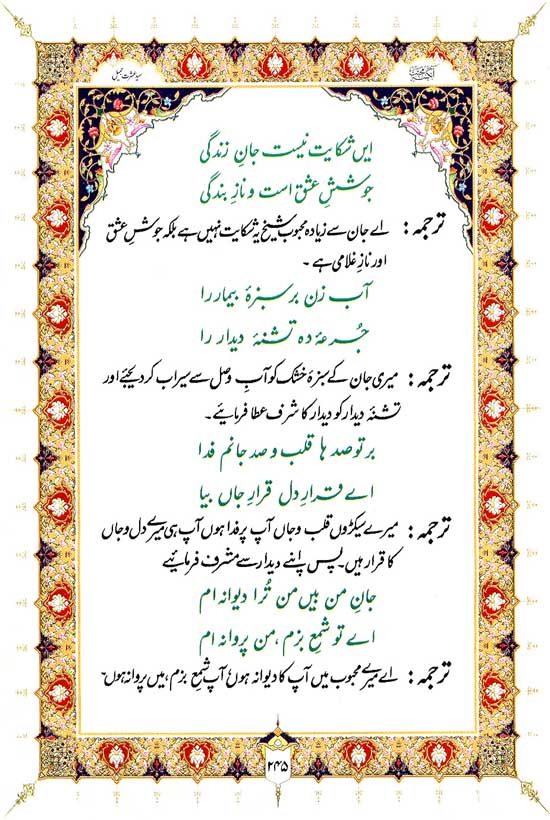 ایں شکایت نیست جانِ زندگی
جوششِ عشق است و نازِ بندگی
ترجمہ: اے جان سے زیادہ محبوب شیخ یہ شکایت نہیں ہے بلکہ جوشِ عشق
اور نازِ غلامی ہے ۔
آب زن بر سبزۂ بیمار را
جُرعۂ دہ تشنۂ دیدار را
ترجمہ: میری جان کے سبزۂ خشک کو آبِ وصل سے سیراب کر دیجئے اور
تشنۂ دیدار کو دیدار کا شرف عطا فرمائیے۔
بر تو صد ہا قلب و صد جانم فدا
اے قرارِ دل قرارِ جاں بیا
ترجمہ: میرے سیکڑوں قلب و جاں آپ پر فدا ہوں آپ ہی میرے دل و جاں
کا قرار ہیں۔ پس اپنے دیدار سے مشرف فرمائیے
جانِ من بیں من تُرا دیوانہ ام
اے تو شمعِ بزم، من پروانہ ام
ترجمہ: اے میرے محبوب میں آپ کا دیوانہ ہوں آپ شمعِ بزم، میں پروانہ ہوں۔
۲۴۵